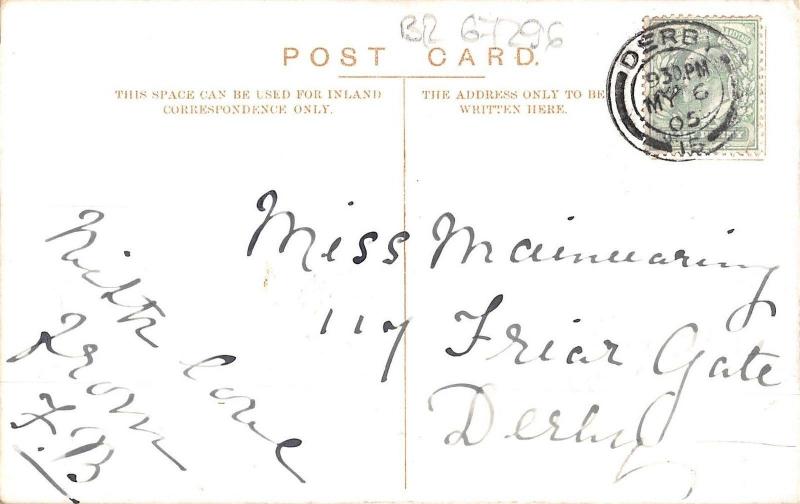 BR 67296
POST CARD.
THIS SPACE CAN BE USED FOR INLAND
CORRESPONDENCE ONLY.
THE ADDRESS ONLY TO BE
WRITTEN HERE.
DERBY
930.PM
MY 6
05
15
With love
From
F.B
Miss Mainwaring
117 Friar Gate
Derby